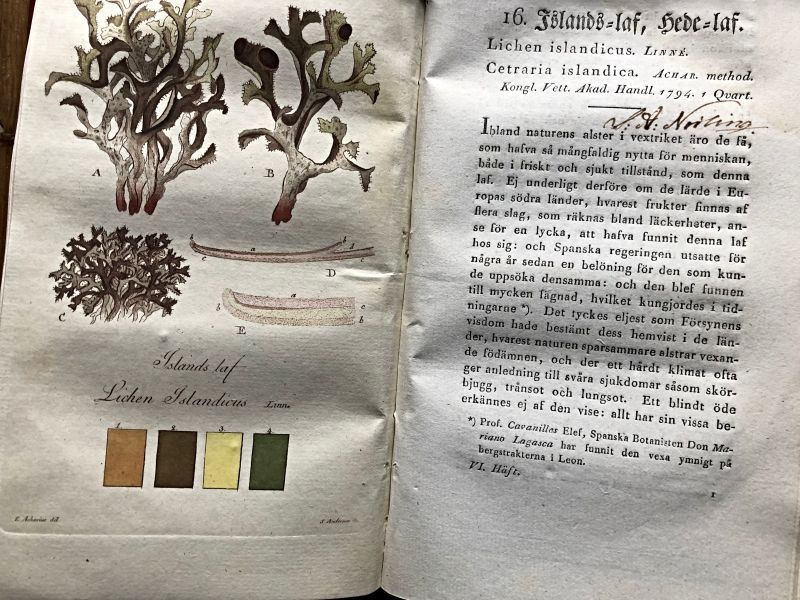 A
B
C
b
a
b
d
c
c
D
a
b
c
b
E
Islands laf
Lichen Islandicus Linn.
1.
2.
3.
4.
E. Acharius del.
16. Islands-laf, Hede-laf.
Lichen islandicus. LINNÉ.
Cetraria islandica. ACHAR. method.
Kongl. Vett. Akad. Handl. 1794. 1 Qvart.
Ibland naturens alster i vextriket äro de få,
som hafva så mångfaldig nytta för menniskan,
både i friskt och sjukt tillstånd, som denna
laf. Ej underligt derföre om de lärde i Eu-
ropas södra länder, hvarest frukter finnas af
flera slag, som räknas bland läckerheter, an-
se för en lycka, att hafva funnit denna laf
hos sig: och Spanska regeringen utsatte för
några år sedan en belöning för den som kun-
de uppsöka densamma: och den blef funnen
till mycken fägnad, hvilket kungjordes i tid-
ningarne *). Det tyckes eljest som Försynens
visdom hade bestämt dess hemvist i de län-
der, hvarest naturen sparsammare alstrar vexan-
de födämnen, och der ett hårdt klimat ofta
ger anledning till svåra sjukdomar såsom skör-
bjugg, trånsot och lungsot. Ett blindt öde
erkännes ej af den vise: allt har sin vissa be-
*) Prof. Cavanilles Elef, Spanska Botanisten Don Ma-
riano Lagasca har funnit den vexa ymnigt på
bergstrakterna i Leon.
VI. Häft.
1